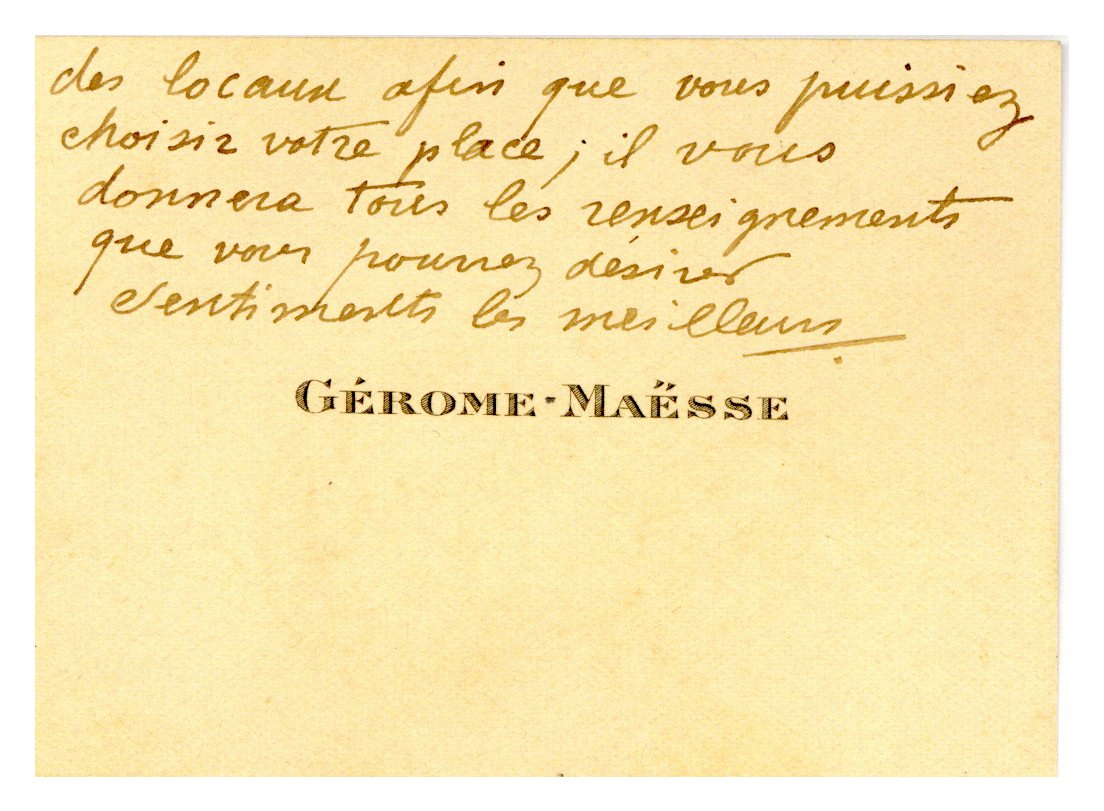 des locaux afin que vous puissiez
choisir votre place ; il vous
donnera tous les renseignements
que vous pourrez désirer
Sentiments les meilleurs
GÉROME-MAËSSE